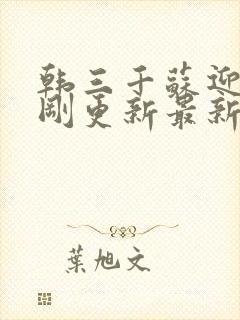 韩三千苏迎
刚更新最新
葉旭文